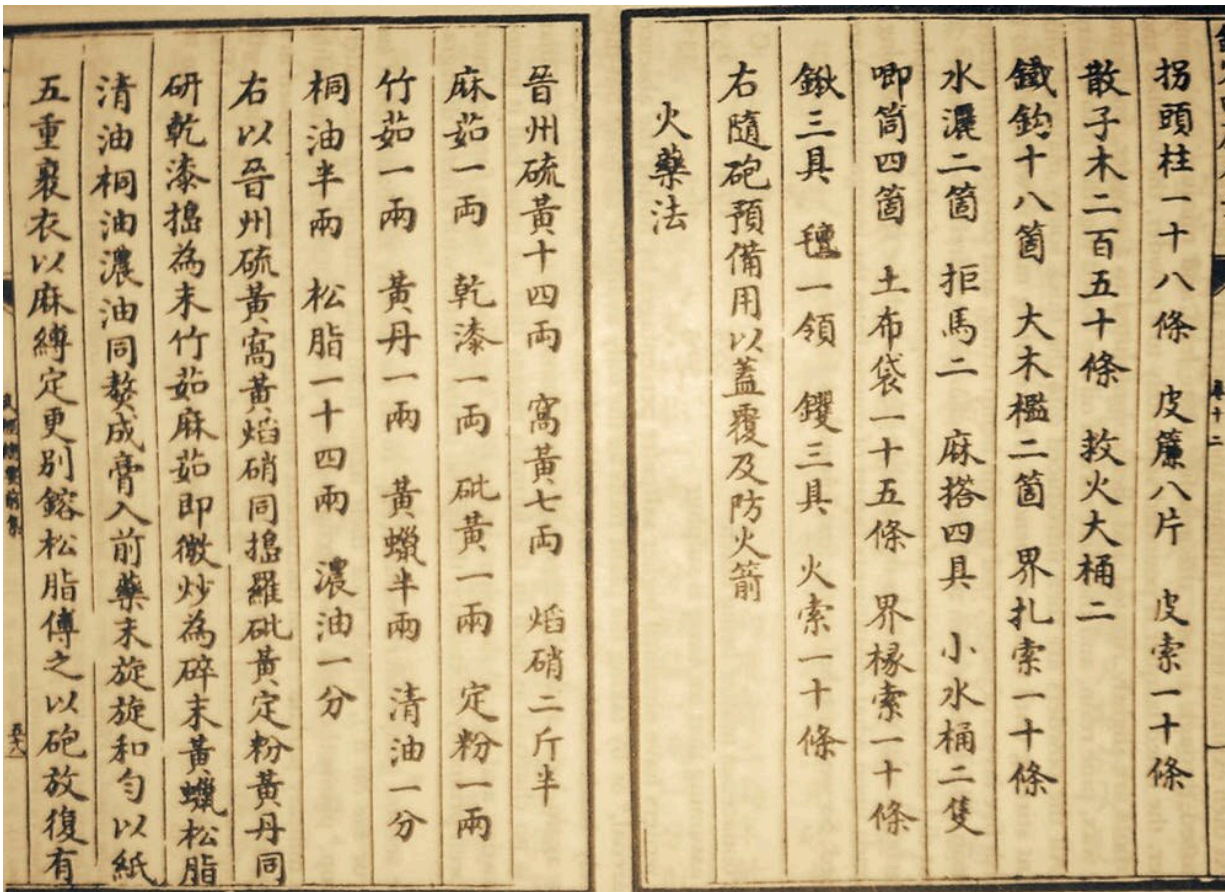 拐頭柱一十八條　皮簾八片　皮索一十條
散子木二百五十條　救火大桶二
鐵鈎十八箇　大木檻二箇　界扎索一十條
水灑二箇　拒馬二　麻搭四具　小水桶二隻
唧筒四箇　土布袋一十五條　界椽索一十條
鍬三具　氊一領　钁三具　火索一十條
右隨砲預備用以蓋覆及防火箭
火藥法
晉州硫黃十四兩　窩黃七兩　焰硝二斤半
麻茹一兩　乾漆一兩　砒黃一兩　定粉一兩
竹茹一兩　黃丹一兩　黃蠟半兩　清油一分
桐油半兩　松脂一十四兩　濃油一分
右以晉州硫黃窩黃焰硝同搗羅砒黃定粉黃丹同
研乾漆搗為末竹茹麻茹即微炒為碎末黃蠟松脂
清油桐油濃油同熬成膏入前藥末旋旋和勻以紙
五重裹衣以麻縛定更別鎔松脂傅之以砲放復有